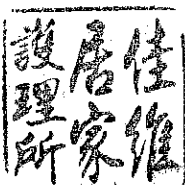 佳維
居家
護理所